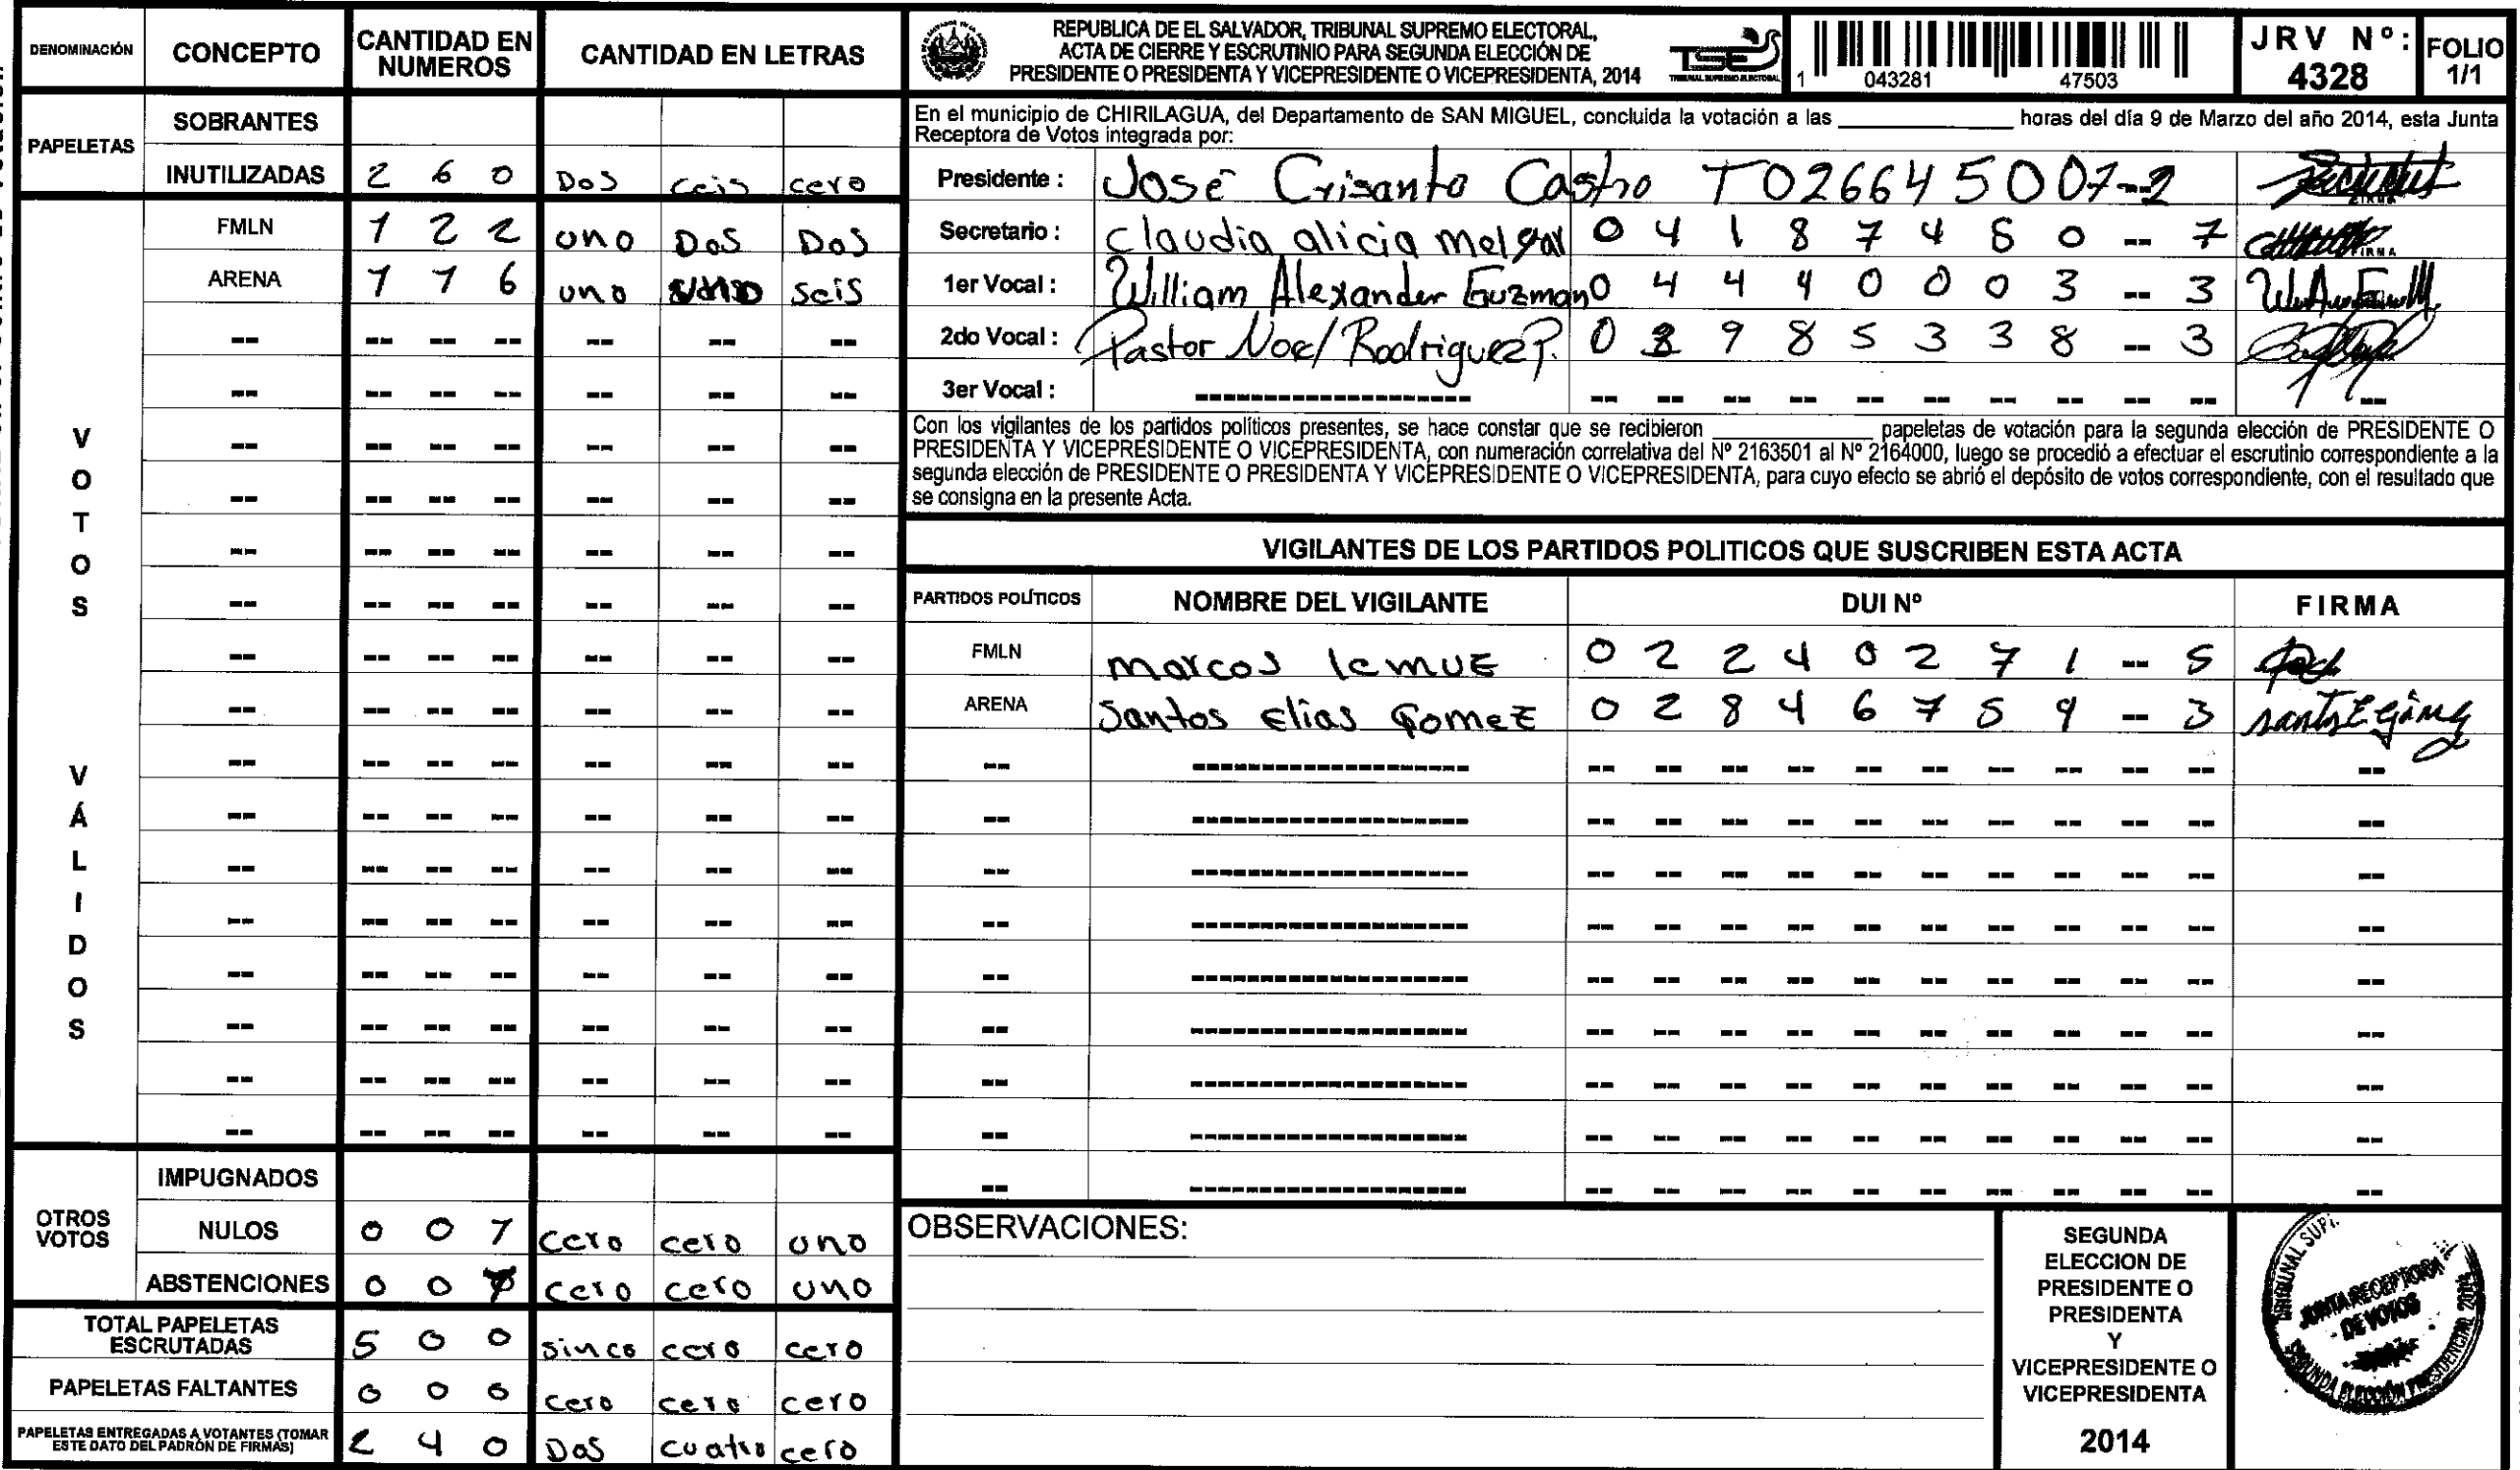 DENOMINACIÓN CONCEPTO CANTIDAD EN NUMEROS CANTIDAD EN LETRAS
PAPELETAS
SOBRANTES
INUTILIZADAS 2 6 0 DOS Ceis cero
VOTOS VÁLIDOS
FMLN 1 2 2 uno DOS DOS
ARENA 1 1 6 uno uno seis
OTROS VOTOS
IMPUGNADOS
NULOS 0 0 1 cero cero uno
ABSTENCIONES 0 0 1 cero cero uno
TOTAL PAPELETAS ESCRUTADAS 5 0 0 sinco cero cero
PAPELETAS FALTANTES 0 0 0 cero cero cero
PAPELETAS ENTREGADAS A VOTANTES (TOMAR ESTE DATO DEL PADRÓN DE FIRMAS) 2 4 0 DOS cuatro cero
REPUBLICA DE EL SALVADOR, TRIBUNAL SUPREMO ELECTORAL,
ACTA DE CIERRE Y ESCRUTINIO PARA SEGUNDA ELECCIÓN DE
PRESIDENTE O PRESIDENTA Y VICEPRESIDENTE O VICEPRESIDENTA, 2014
TSE
TRIBUNAL SUPREMO ELECTORAL
1 043281 47503
JRV Nº: 4328
FOLIO 1/1
En el municipio de CHIRILAGUA, del Departamento de SAN MIGUEL, concluida la votación a las ____ horas del día 9 de Marzo del año 2014, esta Junta
Receptora de Votos integrada por:
Presidente : José Crisanto Castro T026645007-2
Secretario : claudia alicia melgar 0 4 1 8 7 4 5 0 -- 7
FIRMA
1er Vocal : William Alexander Guzman 0 4 4 4 0 0 0 3 -- 3
2do Vocal : Pastor Noel Rodriguez P. 0 3 9 8 5 3 3 8 -- 3
3er Vocal :
Con los vigilantes de los partidos políticos presentes, se hace constar que se recibieron ____ papeletas de votación para la segunda elección de PRESIDENTE O
PRESIDENTA Y VICEPRESIDENTE O VICEPRESIDENTA, con numeración correlativa del Nº 2163501 al Nº 2164000, luego se procedió a efectuar el escrutinio correspondiente a la
segunda elección de PRESIDENTE O PRESIDENTA Y VICEPRESIDENTE O VICEPRESIDENTA, para cuyo efecto se abrió el depósito de votos correspondiente, con el resultado que
se consigna en la presente Acta.
VIGILANTES DE LOS PARTIDOS POLITICOS QUE SUSCRIBEN ESTA ACTA
PARTIDOS POLÍTICOS NOMBRE DEL VIGILANTE DUI Nº FIRMA
FMLN marcos lemuE 0 2 2 4 0 2 7 1 -- 5
ARENA Santos Elias GomeZ 0 2 8 4 6 7 5 9 -- 3
OBSERVACIONES:
SEGUNDA
ELECCION DE
PRESIDENTE O
PRESIDENTA
Y
VICEPRESIDENTE O
VICEPRESIDENTA
2014
JUNTA RECEPTORA
DE VOTOS